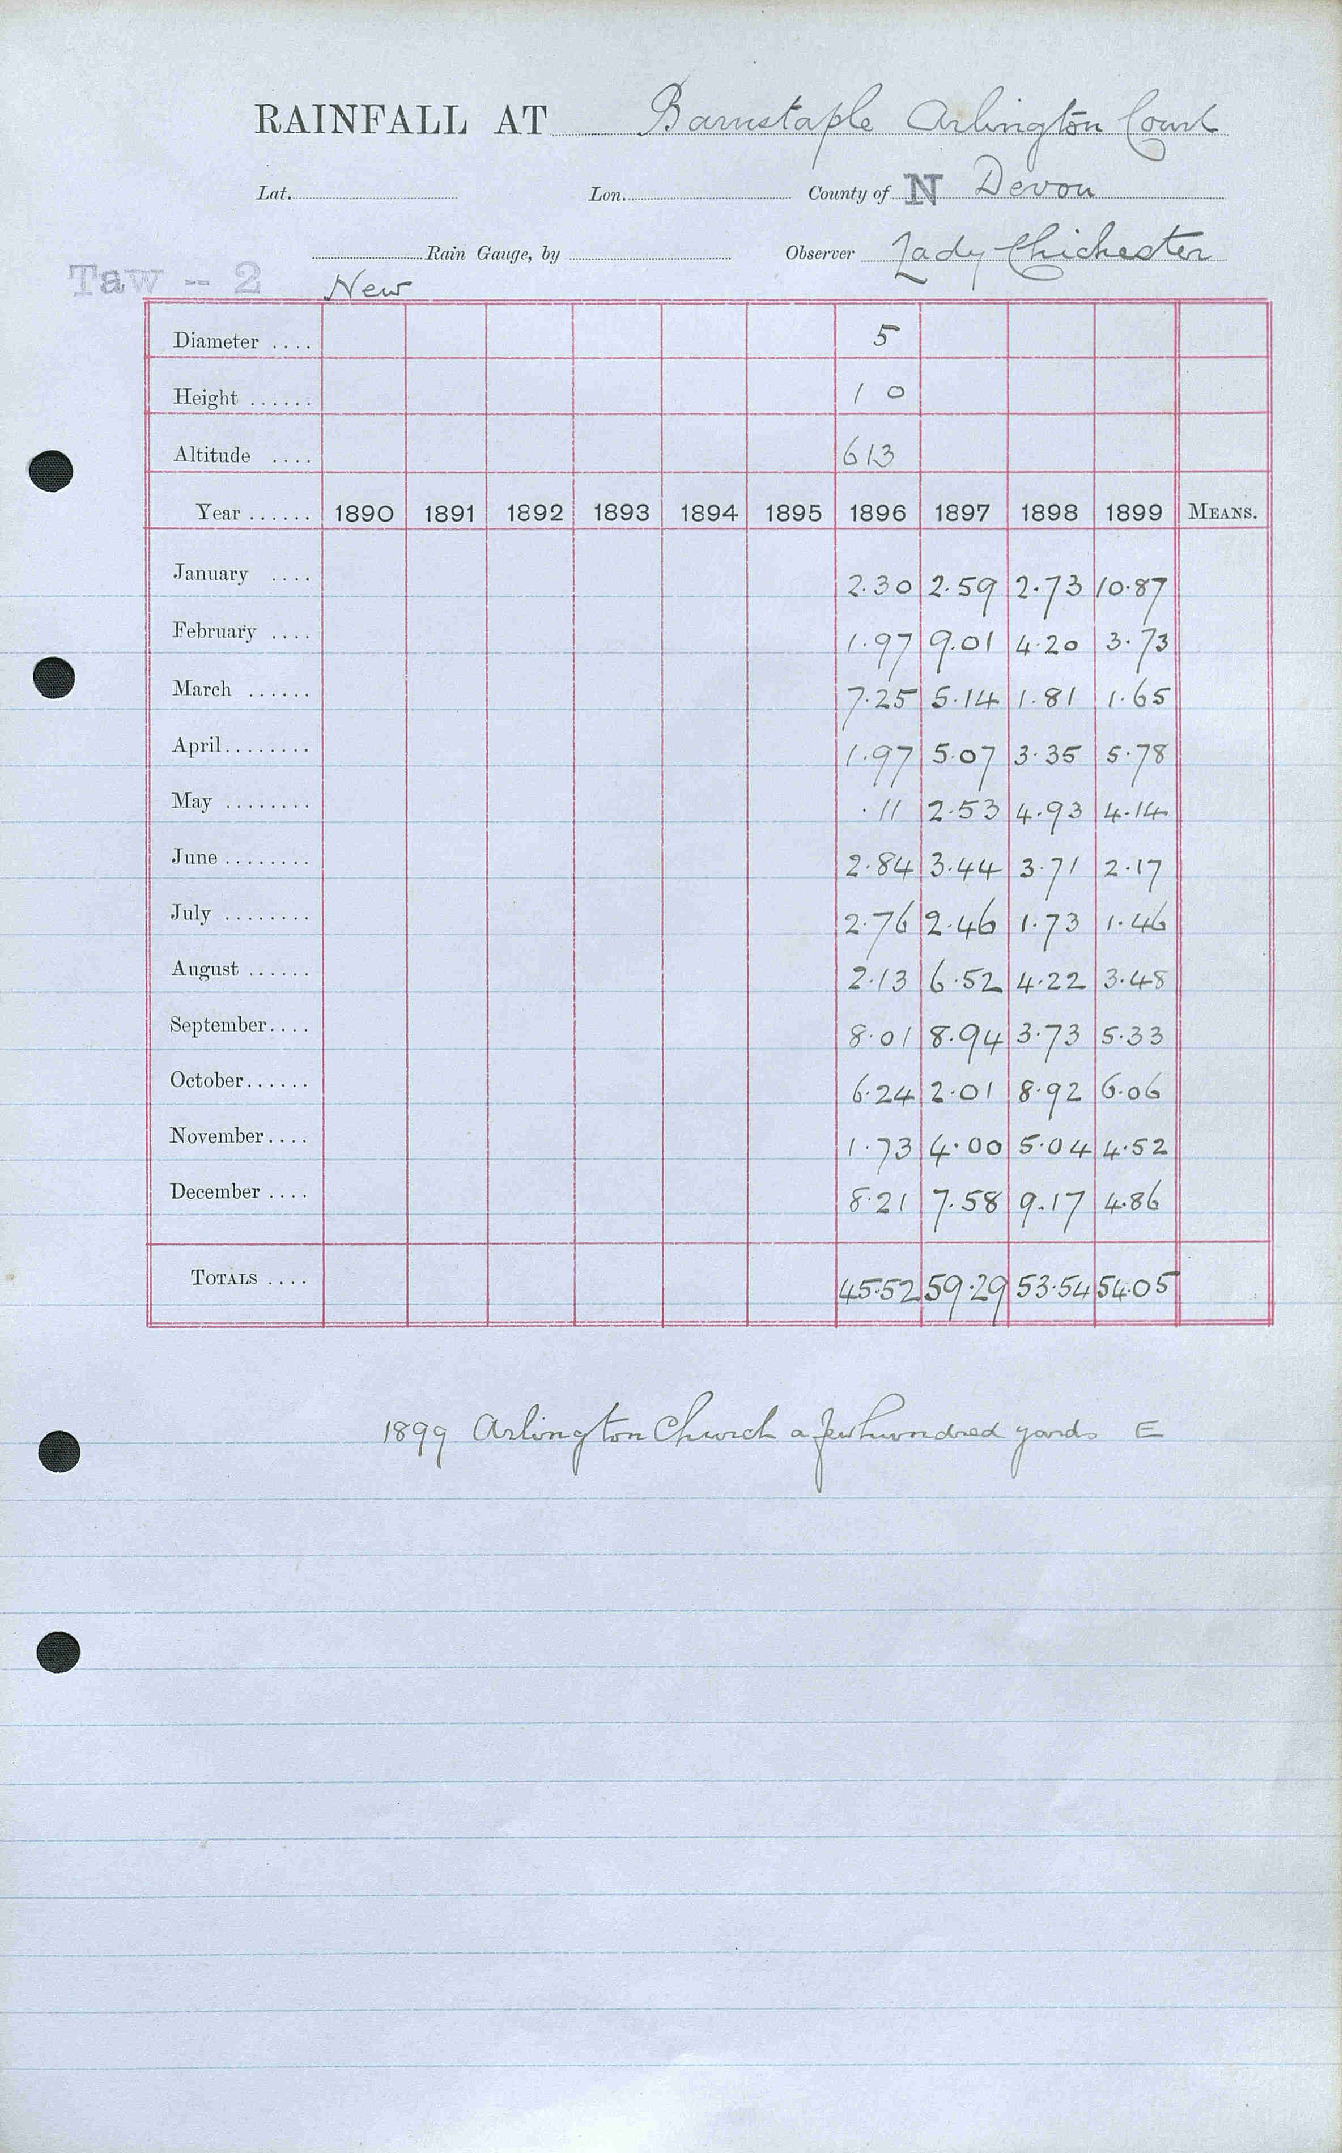 RAINFALL AT Barnstaple Arlington Court
Lat. Lon. County of N Devon
Rain Gauge, by Observer Lady Chichester
Taw -- 2 New
Diameter .... 5
Height ...... 1 0
Altitude .... 613
Year ...... 1890 1891 1892 1893 1894 1895 1896 1897 1898 1899 MEANS.
January .... 2.30 2.59 2.73 10.87
February .... 1.97 9.01 4.20 3.73
March ...... 7.25 5.14 1.81 1.65
April........ 1.97 5.07 3.35 5.78
May ........ .11 2.53 4.93 4.14
June ........ 2.84 3.44 3.71 2.17
July ........ 2.76 2.46 1.73 1.46
August ...... 2.13 6.52 4.22 3.48
September.... 8.01 8.94 3.73 5.33
October...... 6.24 2.01 8.92 6.06
November.... 1.73 4.00 5.04 4.52
December .... 8.21 7.58 9.17 4.86
TOTALS .... 45.52 59.29 53.54 54.05
1899 Arlington Church a few hundred yards E